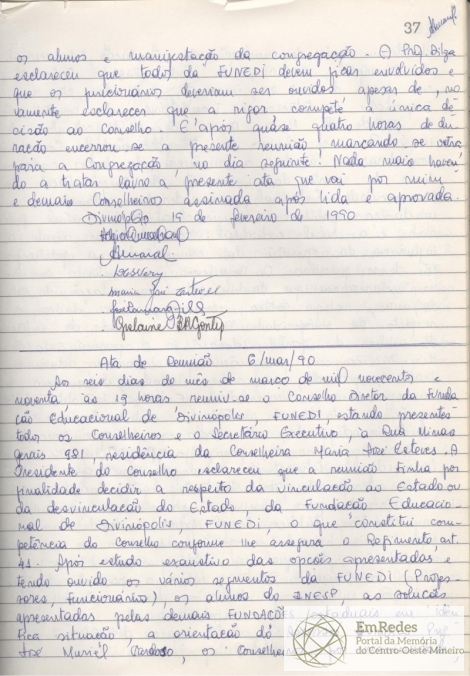 37
os alunos e manifestação da congregação. O Prof. Dilza
esclareceu que todos da FUNEDI devem ficar envolvidos e
que os funcionários deveriam ser ouvidos apesar de, no
vamente esclarecer que a rigor compete a única de
cisão ao Conselho. E após quase quatro horas de du
ração encerrou-se a presente reunião, marcando se outra
para a Congregação, no dia seguinte. Nada mais haven
do a tratar lavro a presente ata que vai por mim
e demais Conselheiros assinada após lida e aprovada.
Divinópolis 19 de fevereiro de 1990
Amaral
Maria José
Gontijo
Ata de Reunião 6/mar/90
Aos seis dias do mês de março de mil novecentos e
noventa às 19 horas reuniu-se o Conselho Diretor da Funda
ção Educacional de Divinópolis, FUNEDI, estando presentes
todos os Conselheiros e o Secretário Executivo, à Rua Minas
gerais 981, residência da Conselheira Maria José Esteves. A
Presidente do Conselho esclareceu que a reunião tinha por
finalidade decidir a respeito da vinculação ao Estado ou
da desvinculação do Estado, da Fundação Educacio
nal de Divinópolis, FUNEDI, o que constitui com
petência do Conselho conforme lhe assegura o Regimento, art.
Após estudo exaustivo das opções apresentadas, e
tendo ouvido os vários segmentos da FUNEDI (Profes
sores, funcionários), os alunos do INESP, as soluções
apresentadas pelas demais FUNDAÇÕES em idên
tica situação, a orientação do
José Muriel Cardoso, os Conselheiros
EmRedes
Portal da Memória
do Centro-Oeste Mineiro